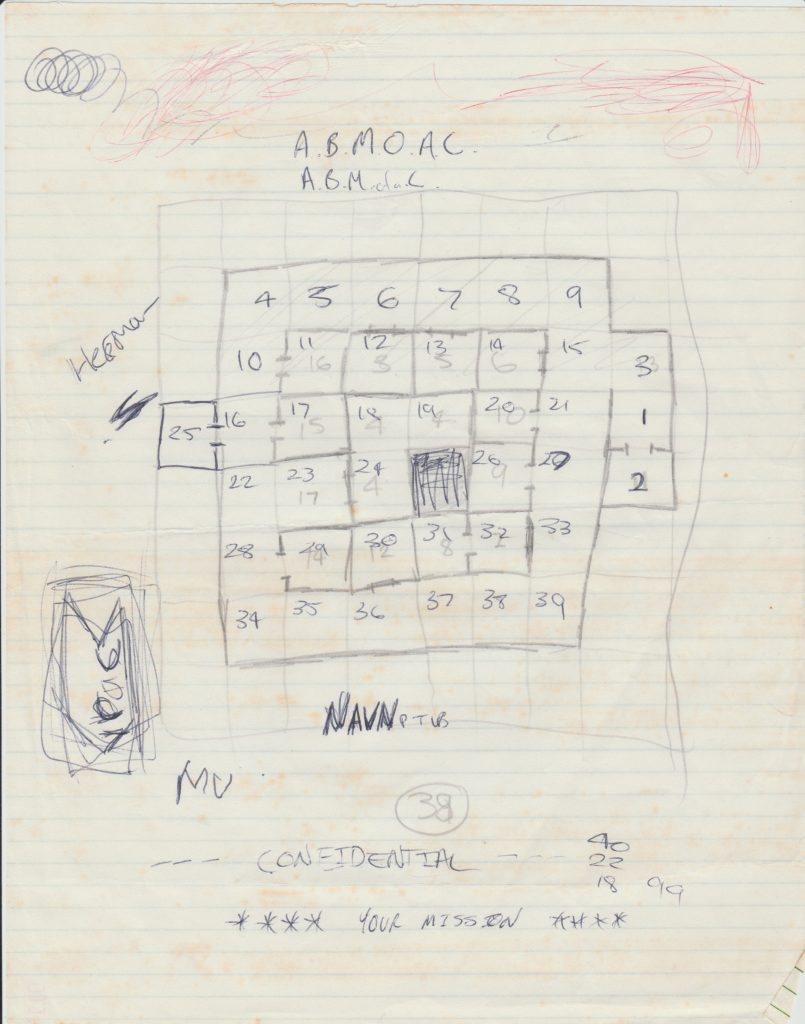 A.B.M.O.A.C.
A.B.M.o.a.C.
4 5 6 7 8 9
10 11 12 13 14 15 3
16 3 5 6
25 16 17 18 19 20 21 1
15 4 10
22 23 24 26 27 2
17 4 9
28 29 30 31 32 33
14 12 8
34 35 36 37 38 39
NAVN
MV
38
--- CONFIDENTIAL ---
40
22
18 99
**** YOUR MISSION ****